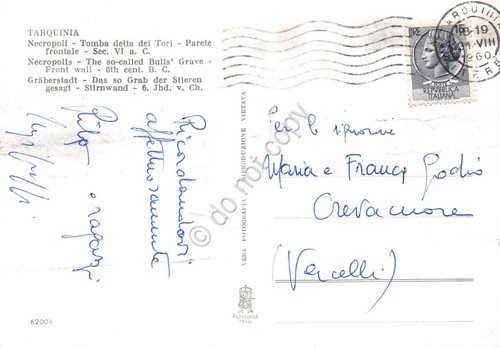 TARQUINIA
Necropoli - Tomba detta dei Tori - Parete
frontale - Sec. VI a. C.
Necropolis - The so-called Bulls' Grave -
Front wall - 6th cent. B. C.
Gräberstadt - Das so Grab der Stieren
gesagt - Stirnwand - 6. Jhd. v. Ch.
Ricordandovi
affettuosamente
Rita e ragazzi
62008
VERA FOTOGRAFIA - RIPRODUZIONE VIETATA
ALTEROCCA
TERNI
LIRE
REPUBBLICA
ITALIANA
TARQUINIA
18-19
VIII
1960
Maria e Franco Godio
Crevacuore
(Vercelli)
do not copy